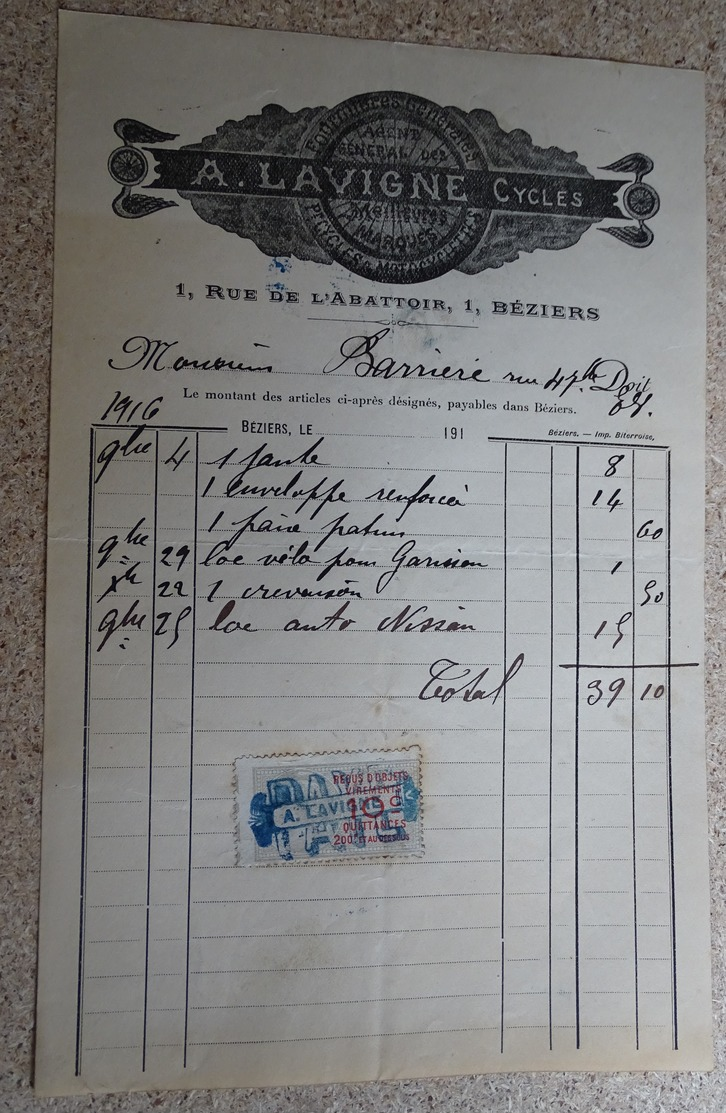 Fournitures Générales
AGENT
GÉNÉRAL DES
A. LAVIGNE CYCLES
Meilleures
MARQUES
BICYCLES & MOTOCYCLETTES
1, RUE DE L'ABATTOIR, 1, BÉZIERS
Monsieur Barrière rue 4 7bre
Le montant des articles ci-après désignés, payables dans Béziers.
1916
BÉZIERS, LE 191
Béziers. — Imp. Biterroise,
9bre 4 1 jante 8
1 enveloppe renforcée 14
1 paire patins 60
9bre 29 loc vélo pour 1
22 1 crevaison 50
9bre 25 loc auto Nissan 15
Total 39 10
REÇUS D'OBJETS
VIREMENTS
A. LAVIGNE 10c
QUITTANCES
200f ET AU DESSOUS